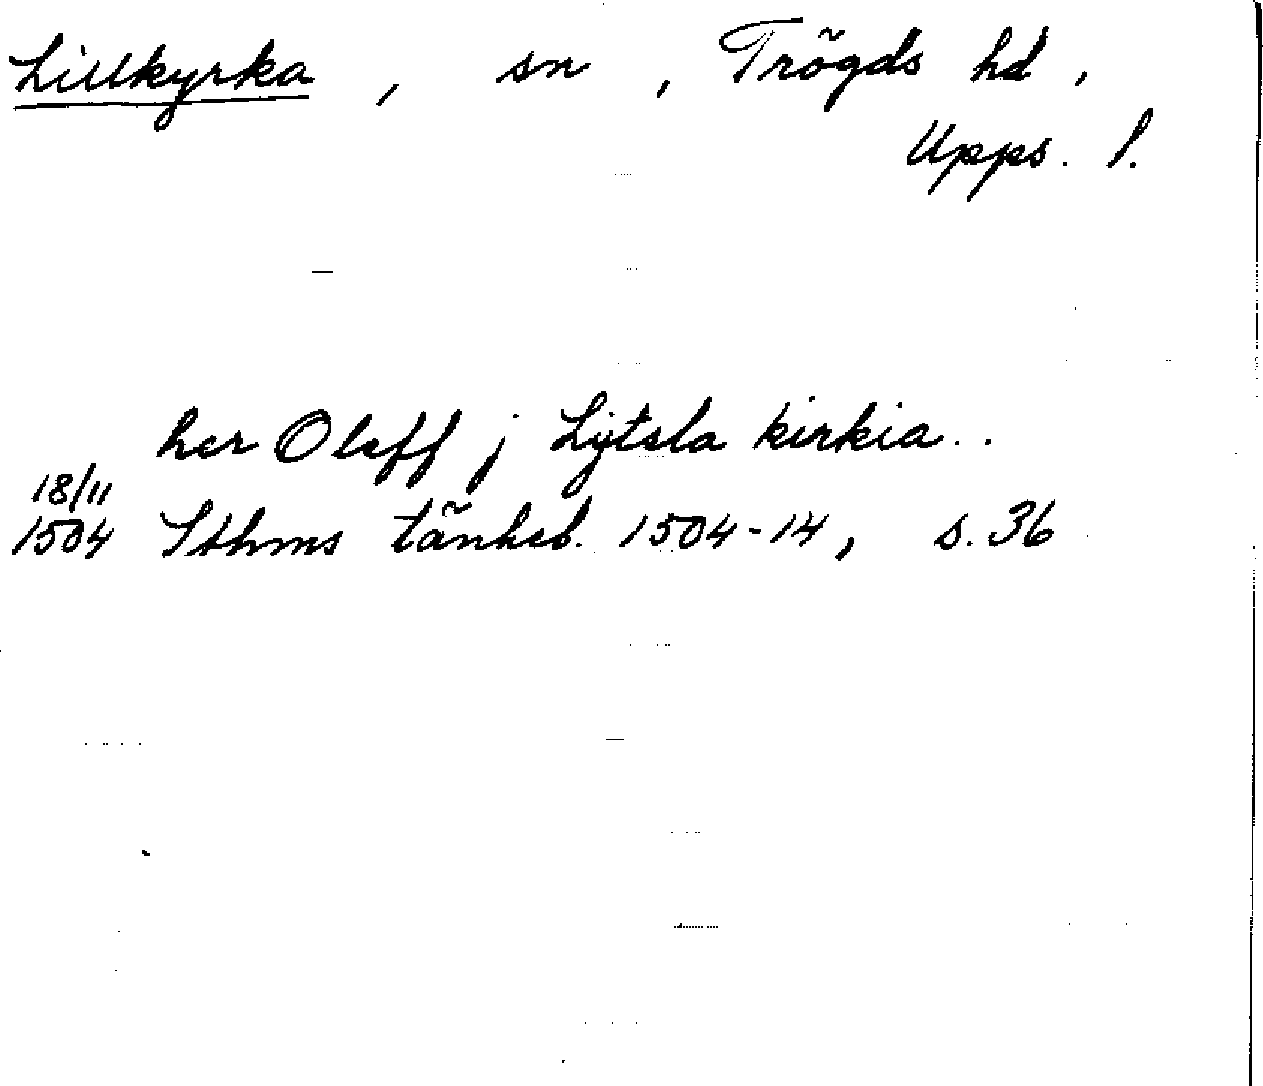 Lillkyrka, sn, Trögds hd,
Upps. l.
her Oleff j Lytsla kirkia..
18/11
1504 Sthms tänkeb. 1504-14, s. 36